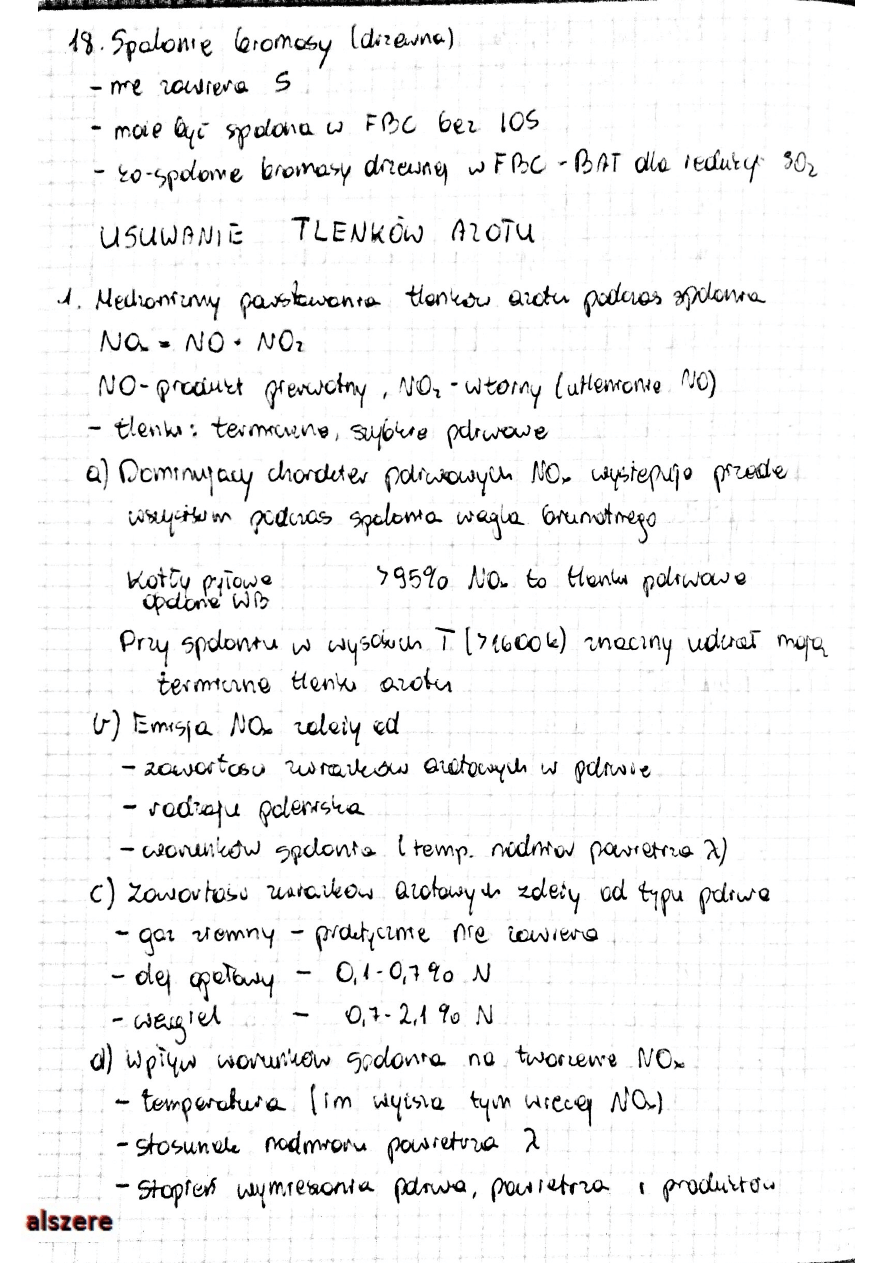 18. Spalanie biomasy (drzewna)
- nie zawiera S
- może być spalana w FBC bez IOS
- 20-spalanie biomasy drzewnej w FBC - BAT dla redukcji SO2
USUWANIE TLENKÓW AZOTU
1. Mechanizmy powstawania tlenków azotu podczas spalania
NOx = NO + NO2
NO - produkt pierwotny, NO2 - wtórny (utlenianie NO)
- tlenki: termiczne, szybkie paliwowe
a) Dominujący charakter paliwowych NOx występuje przede
wszystkim podczas spalania węgla brunatnego
Kotły pyłowe >95% NOx to tlenki paliwowe
opalane WB
Przy spalaniu w wysokich T (>1600K) znaczny udział mają
termiczne tlenki azotu
b) Emisja NOx zależy od
- zawartości związków azotowych w paliwie
- rodzaju paleniska
- warunków spalania (temp. nadmiar powietrza λ)
c) Zawartość związków azotowych zależy od typu paliwa
- gaz ziemny - praktycznie nie zawiera
- olej opałowy - 0,1-0,7% N
- węgiel - 0,7-2,1% N
d) Wpływ warunków spalania na tworzenie NOx
- temperatura (im wyższa tym więcej NOx)
- stosunek nadmiaru powietrza λ
- stopień wymieszania paliwa, powietrza i produktów
alszere